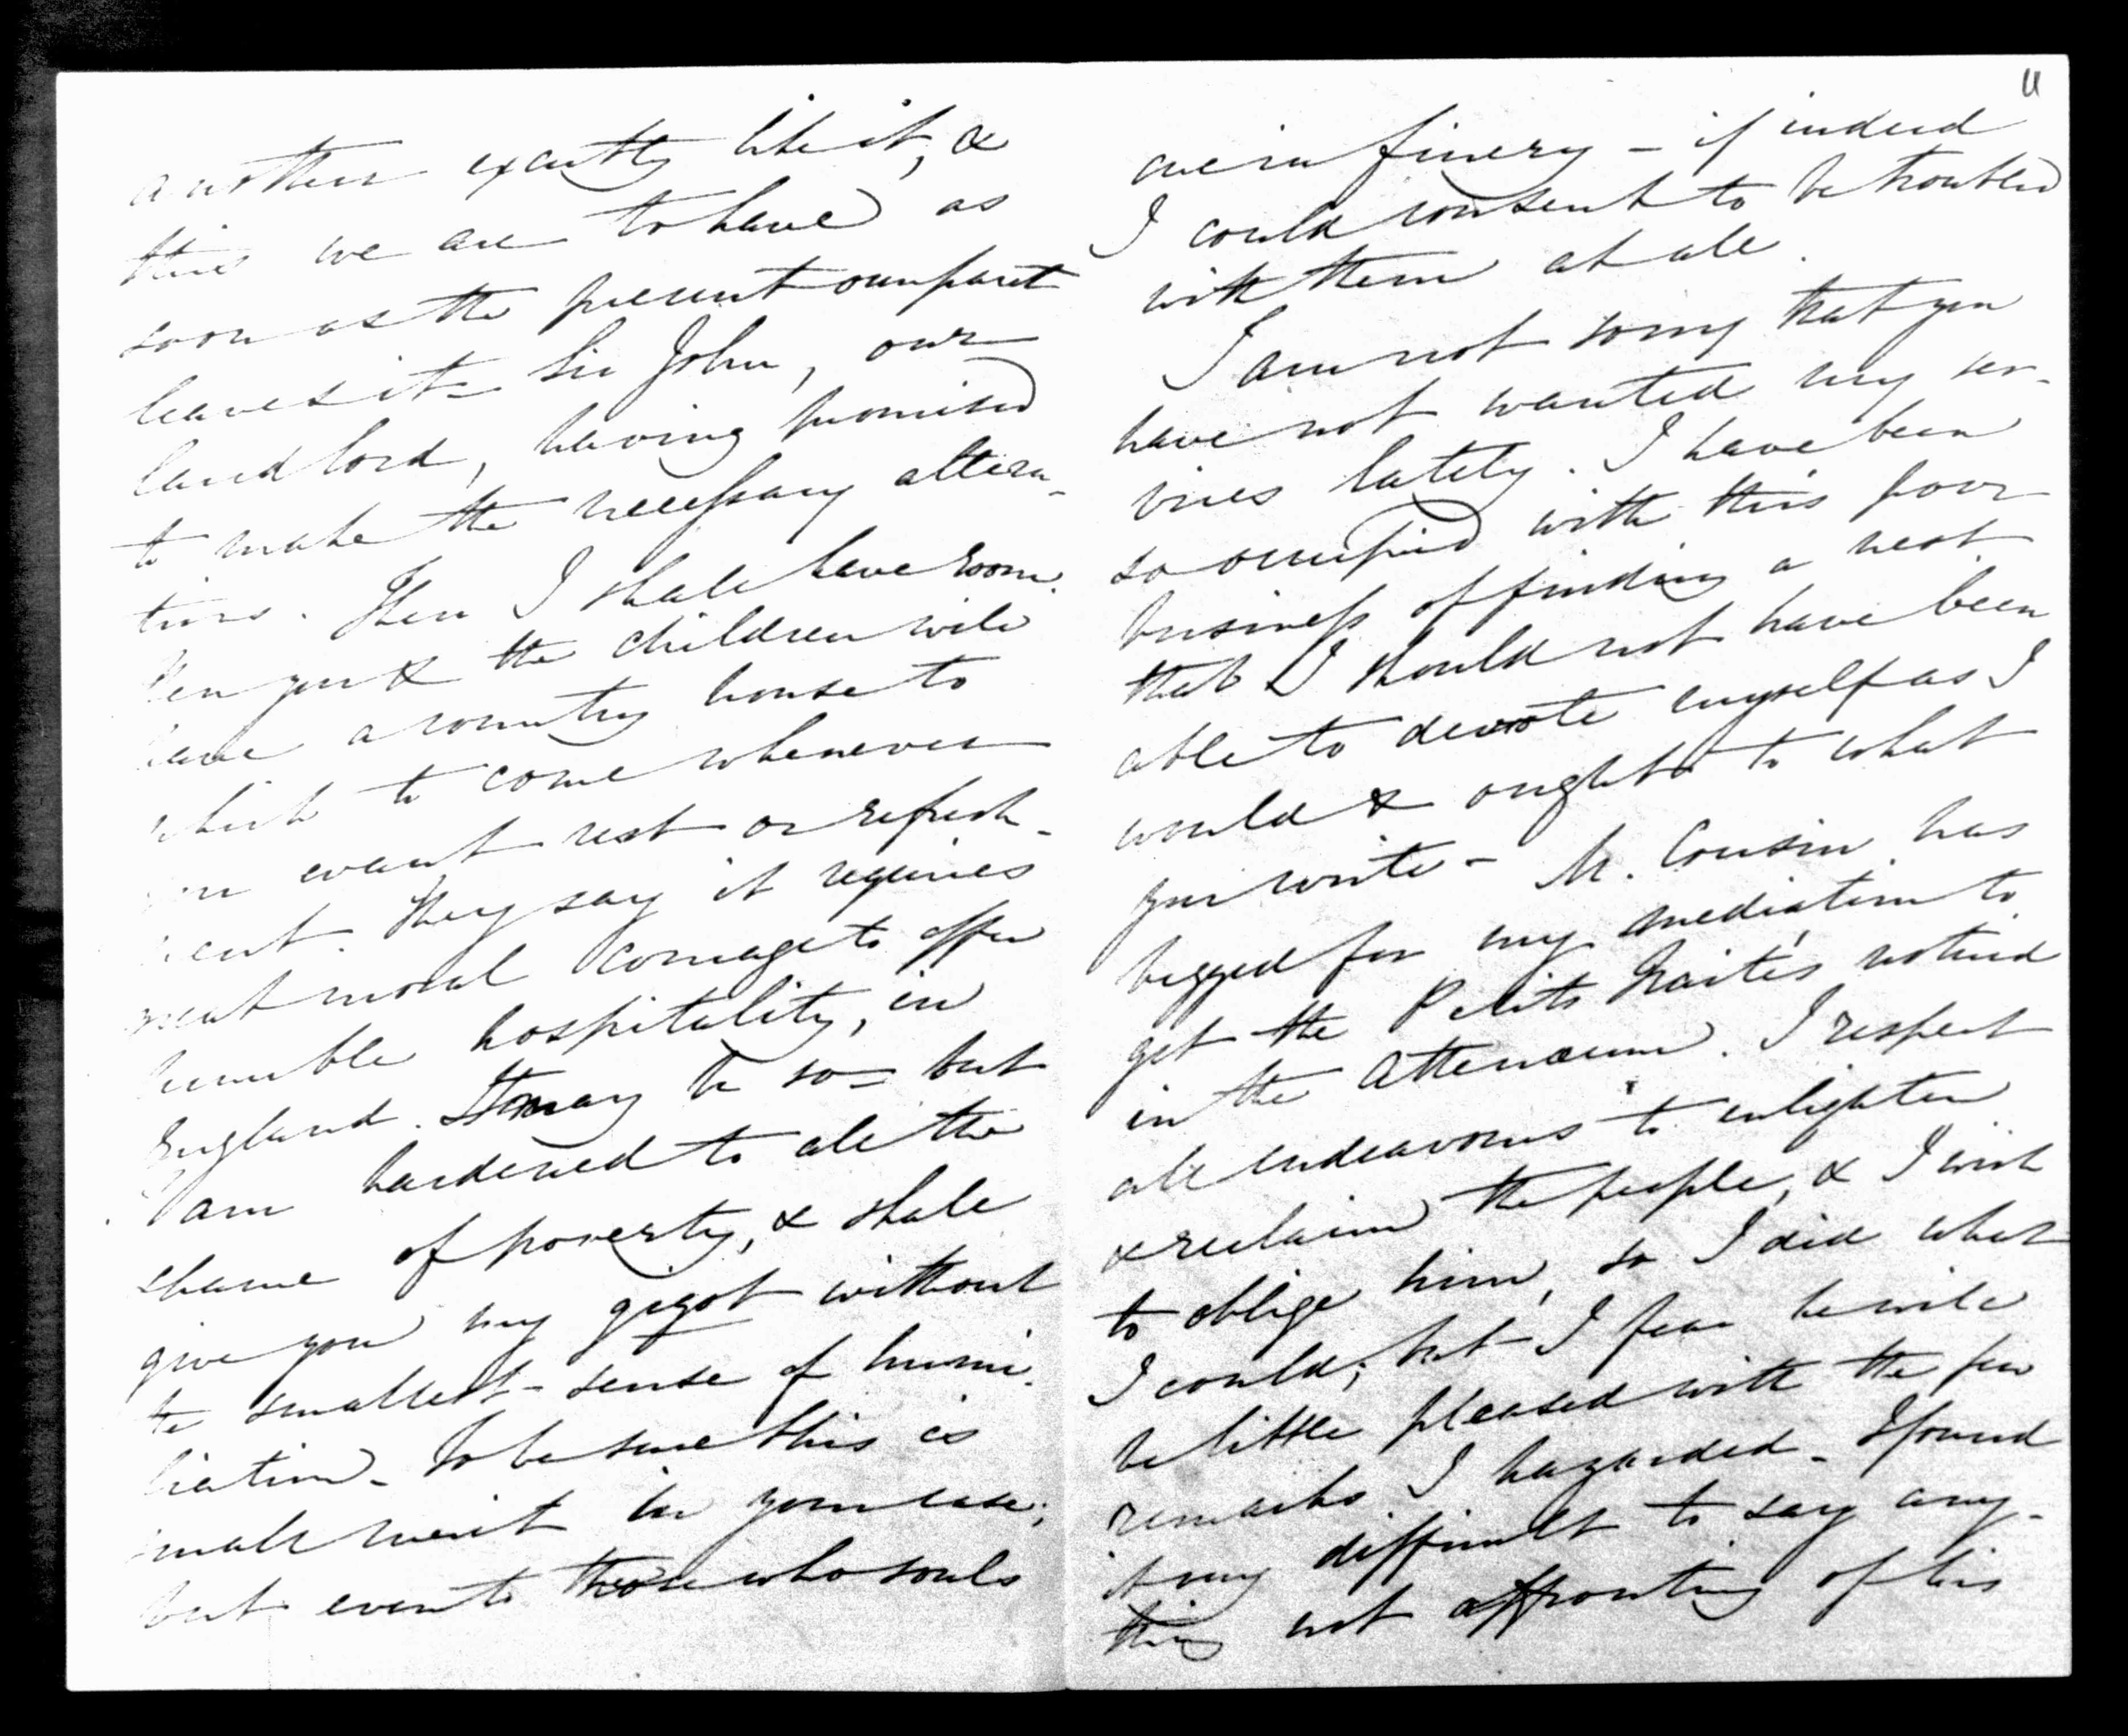 another exactly like it, &
this we are to have as
soon as the present occupant
leaves it – Sir John, our
landlord, having promised
to make the necessary altera-
tions. Then I shall have room.
Then you & the children will
have a country house to
which to come whenever
you want rest or refresh-
ment. They say it requires
great moral courage to offer
humble hospitality, in
England. It may be so – but
I am hardened to all the
shame of poverty, & shall
give you my gigot without
the smallest sense of humi-
liation – to be sure this is
small merit in your case;
but even to those who souls
11
are in finery – if indeed
I could consent to be troubled
with them at all.
I am not sorry that you
have not wanted my ser-
vices lately. I have been
so occupied with this poor
business of finding a nest
that I should not have been
able to devote myself as I
would & ought to what
you write – M. Cousin has
begged for my mediation to
get the Petits Traités noticed
in the Athenæum. I respect
all endeavours to enlighten
& reclaim the people, & I wish
to oblige him, so I did what
I could; but I fear he will
be little pleased with the few
remarks I hazarded – I found
it very difficult to say any-
thing not affronting of his